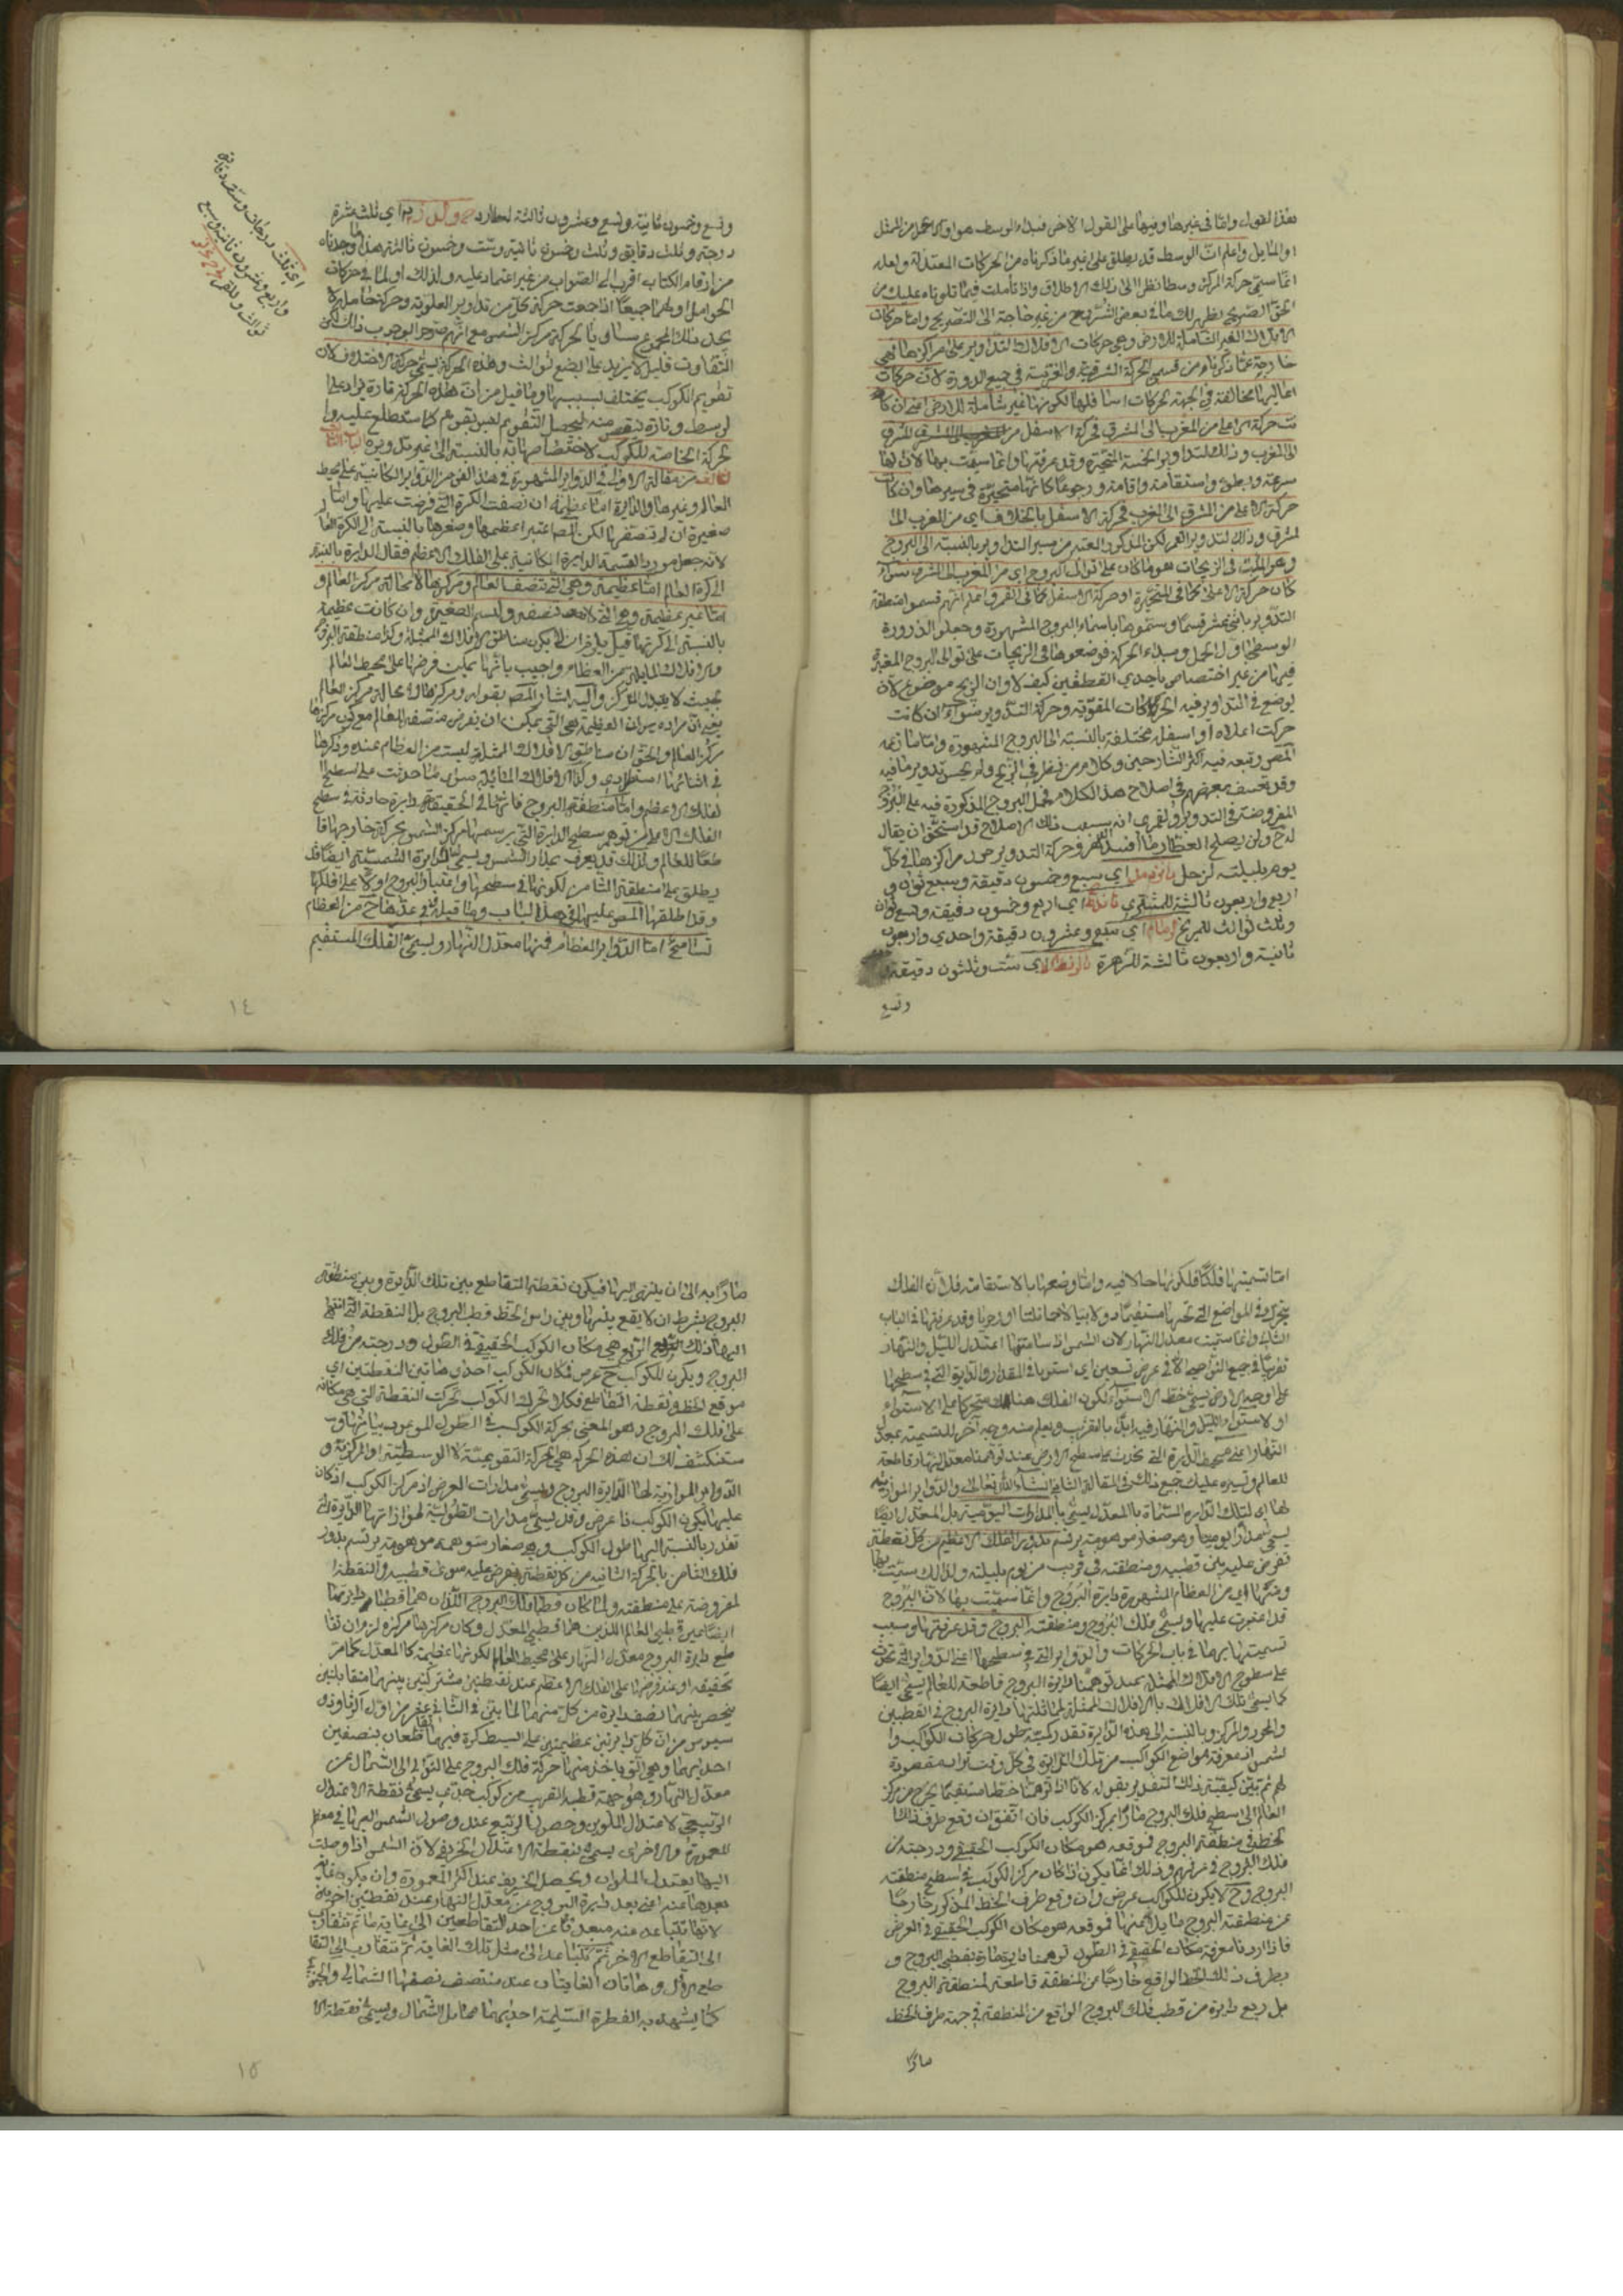 هذا القول واما في غيرها وفيها على القول الاخر فمبداء الوسط هو اوج
او المايل واعلم ان الوسط قد يطلق على غير ما ذكرناه من الحركات المعتدلة ولعله
انما سمي حركة المركز وسطا نظرا الى ذلك الاطلاق واذ تاملت فيما تلوناه عليك من
الحق الصريح يظهر لك ما في بعض الشروح من غير حاجة الى التصريح واما حركات
الافلاك الغير الشاملة للارض وهي حركات الافلاك التداوير على مراكزها فهي
خارجة عما ذكرناه من قسمي الحركة الشرقية والغربية في جميع الدورة لان حركات
اعاليها مخالفة في الجهة لحركات اسافلها لكونها غير شاملة للارض اعني ان كا
نت حركة الاعلى من المغرب الى المشرق فحركة الاسفل من المشرق
الى المغرب وذلك لتداوير الخمسة المتحيرة وقد عرفتها وانما سميت بها لان لها
سرعة وبطئ واستقامة واقامة ورجوعا كانها متحيرة في سيرها وان كانت
حركة الاعلى من المشرق الى المغرب فحركة الاسفل بالخلاف اي من المغرب الى
المشرق وذلك لتدوير القمر لكن المذكور المعتبر من سير التداوير بالنسبة الى البروج
وهو المثبت في الزيجات هو ما كان على توالي البروج اي من المغرب الى المشرق سواء
كان حركة الاعلى كما في المتحيرة او حركة الاسفل كما في القمر واعلم انهم قسموا منطقة
التدوير باثنى عشر قسما وسموها باسماء البروج المشهورة وجعلوا الذروة
الوسطى اول الحمل ومبداء الحركة فوضعوها في الزيجات على توالي البروج المعتبرة
فيها من غير اختصاص باحدي القطعتين كيف لا وان الزيج موضوع لان
يوضع في التداوير فيه الحركات المقومة وحركة التدوير سواء كانت
حركت اعلاه او اسفله مختلفة بالنسبة الى البروج المشهورة واما ما زعمه
المصر وتبعه فيه اكثر الشارحين وكلام من نظر في الزيج ولم يحسن تدوير ما فيه
وقد تعسف بعضهم في اصلاح هذا الكلام فحمل البروج المذكورة فيه على البروج
المفروضة في التدوير ولعمري انه بسبب ذلك الاصلاح قد استحق ان يقال
له ع ولن يصلح العطار ما افسد الدهر وحركة التدوير حول مراكزها في كل
يوم بليلته لزحل اي سبع وخمسون دقيقة وسبع ثوان و
اربع واربعون ثالثة للمشتري اي اربع وخمسون دقيقة وتسع ثوان
وثلث ثوالث للمريخ اي سبع وعشرون دقيقة واحدي واربعون
ثانية واربعون ثالثة للزهرة اي ست وثلثون دقيقة
وتسع
وتسع وخمسون ثانية وتسع وعشرون ثالثة لعطارد اي ثلث عشرة
درجة وثلث دقايق وثلث وخمسون ثانية وست وخمسون ثالثة هذا ما وجدناه
من ارقام الكتاب اقرب الى الصواب من غير اعتماد عليه ولذلك او لما في حركات
الحوامل او لهما جميعا اذا جمعت حركة كل من تداوير العلوية وحركة حامله لا
يجد ذلك المجموع مساويا لحركة مركز الشمس مع انهم صرحوا بوجوب ذلك لكن
التفاوت قليل لا يزيد على بضع ثوالث وهذه الحركة يسمى حركة الاختلاف لان
تقويم الكوكب يختلف بسببها وما قيل من ان هذه الحركة تارة يزاد على
الوسط وتارة ينقص منه ليحصل التقويم كما ستطلع عليه وا
لحركة الخاصة للكوكب لاختصاصها به بالنسبة الى غير تدويره الباب الثالث
من مقالة الاولى في الدواير المشهورة في هذا الفن من الدواير الكائنة على محيط
العالم وغيرها والدايرة اما عظيمة ان نصفت الكرة التي فرضت عليها واما
صغيرة ان لم تنصفها لكن المصر اعتبر اعظمها وصغرها بالنسبة الى الكرة العا
لانه جعل مورد القسمة الدايرة الكائنة على الفلك الاعظم فقال الدايرة بالنسبة
الى كرة العالم اما عظيمة وهي التي تنصف العالم ومركزها لا محالة مركز العالم و
اما غير عظيمة وهي التي لا تنصفه وتسم الصغيرة وان كانت عظيمة
بالنسبة الى كرتها قيل يلزم ان لا يكون مناطق الافلاك الممثلة وكذا منطقة البروج
والافلاك المايلة من العظام واجيب بانها يمكن فرضها على محيط العالم
بحيث لا يتبدل المركز واليه اشار المصر بقوله ومركزها لا محالة مركز العالم
يعني ان مراده من ان العظيمة هي التي يمكن ان يفرض منصفة للعالم مع كون مركزها
مركز العالم والحق ان مناطق الافلاك الممثلة ليست من العظام عنده وذكرها
في اثنائها استطرادي وكذا الافلاك المائلة سوى ما حدثت على سطح
الفلك الاعظم واما منطقة البروج فانها في الحقيقة دايرة حادثة في سطح
الفلك الاعظم من توهم سطح الدايرة التي يرسمها مركز الشمس بحركة خارجها قا
طعا للعالم ولذلك قد يعرف بمدار الشمس ويسمى الدايرة الشمسية ايضا وقد
يطلق على منطقة الثامن لكونها في سطحها واعتبار البروج اولا على افلكها
وقد اطلقها المصر عليها في هذا الباب وما قيل في عدها ح من العظام
تسامح اما الدواير العظام فمنها معدل النهار ويسمى الفلك المستقيم
اي ثلث درجات وستة دقايق
واربع وعشرون ثانية وسبع
ثوالث وللقمر
١٤
اما تسميتها فلكا فلكونها حالا فيه واما وضعها بالاستقامة فلان الفلك
يتحرك في المواضع التي تحتها مستقيما دولابيا لا حمائليا او رحويا وقد عرفتها في الباب
الثاني وانما سميت معدل النهار لان الشمس اذا سامتتها اعتدل الليل والنهار
تقريبا في جميع النواحي الا في عرض تسعين اي استويا في المقدار والدايرة التي في سطحها
على وجه الارض يسمى خط الاستواء لكون الفلك هناك متحركا على الاستواء
او لاستواء الليل والنهار فيه ابدا بالتقريب ويعلم منه وجه اخر للتسمية بمعدل
النهار اعني محيط الدايرة التي يحدث على سطح الارض عند توهمنا معدل النهار قاطعة
للعالم وسيرد عليك جميع ذلك في المقالة الثانية انشاء الله تعالى والدواير الموازية
لها اي لتلك الدايرة المسماة بالمعدل يسمى بالمدارات اليومية بل المعدل ايضا
يسمى مدارا يوميا وهو صغار موهومة يرتسم بدور الفلك الاعظم من كل نقطة
تفرض عليه بين قطبيه ومنطقته في قريب من يوم بليلته ولذلك سميت بها
ومنها اي من العظام المشهورة دايرة البروج وانما سميت بها لان البروج
قد اعتبرت عليها ويسمى فلك البروج ومنطقة البروج وقد عرفتها وسبب
تسميتها بها في باب الحركات والدواير التي في سطحها اعني الدواير التي تحدث
على سطوح الافلاك الممثلة عند توهمنا دايرة البروج قاطعة للعالم يسمى ايضا
كما يسمى تلك الافلاك بالافلاك الممثلة لمماثلتها دايرة البروج في القطبين
والمحور والمركز وبالنسبة الى هذه الدايرة تقدر كمية طول حركات الكواكب وا
لشمس اذ معرفة مواضع الكواكب من تلك الدايرة في كل وقت يراد مقصودة
لهم ثم يبين كيفية ذلك التقدير بقوله لانا اذا توهمنا خطا مستقيما يخرج من مركز
العالم الى سطح فلك البروج مارا بمركز الكوكب فان اتفق ان وقع طرف ذلك
الخط في منطقة البروج فموقعه هو مكان الكوكب الحقيقي ودرجته من
فلك البروج في عرفهم وذلك انما يكون اذا كان مركز الكوكب في سطح منطقة
البروج وح لا يكون للكوكب عرض وان وقع طرف الخط المذكور خارجا
عن منطقة البروج مايلا عنها فموقعه هو مكان الكوكب الحقيقي في العرض
فاذا اردنا معرفة مكان الحقيقي في الطول توهمنا دايرة مارة بقطبي البروج و
بطرف ذلك الخط الواقع خارجا عن المنطقة قاطعة لمنطقة البروج
بل ربع دايرة من قطب فلك البروج الواقع من المنطقة في جهة طرف الخط
مارا
مارا به الى ان ينتهي اليها فيكون نقطة التقاطع بين تلك الدايرة وبين منطقة
البروج بشرط ان لا يقع بينها وبين راس الخط قطب البروج بل النقطة التي انتهى
اليها ذلك الربع هي مكان الكوكب الحقيقي في الطول ودرجته من فلك
البروج ويكون للكوكب ح عرض فمكان الكوكب احدى هاتين النقطتين اي
موقع الخط ونقطة التقاطع فكلما تحرك الكوكب تحركت النقطة التي هي مكانه
على فلك البروج وهو المعنى بحركة الكوكب في الطول الموعود بيانها و
ستنكشف لك ان هذه الحركة هي الحركة التقويمية لا الوسطية او المركزية و
الدواير الموازية لها الدايرة البروج ويسمى مدارات العرض اذ مركز الكوكب اذ كان
عليها يكون الكوكب ذا عرض وقد يسمى مدارات الطولية لموازاتها الدايرة التي
تقدر بالنسبة اليها طول الكوكب وهي صغار متوهمة موهومة يرتسم بدور
فلك الثامن بالحركة الثانية من كل نقطة يفرض عليه سوى قطبيه والنقطة ا
لمفروضة على منطقته ولما كان قطبا فلك البروج اللذان هما قطبا دايرتها
ايضا غير قطبي العالم اللذين هما قطبي المعدل وكان مركزهما مركزه لزم ان تقا
طع دايرة البروج معدل النهار على محيط العالم لكونها عظيمة كالمعدل كما مر
تحقيقه او عند فرضها على الفلك الاعظم عند نقطتين مشتركتين بينهما متقابلتين
ينحصر بينهما نصف دايرة من كل منهما لما بين في الثاني عشر من اولى اكر ثاوذو
سيوس من ان كل دايرتين عظيمتين على بسيط كرة فهما يتقاطعان بنصفين
احديهما وهي التي ياخذ منها حركة فلك البروج على التوالي الى الشمال عن
معدل النهار وهو جهة قطب القريب من كوكب جدي يسمى نقطة الاعتدال
الربيعي لاعتدال الملوين وحصول الربيع عند وصول الشمس اليها في معظم
المعمورة والاخرى يسمى نقطة الاعتدال الخريفي لان الشمس اذا وصلت
اليها يعتدل الملوان ويحصل الخريف عند اكثر المعمورة وان يكون غاية
بعدها عنه اعني بعد دايرة البروج عن معدل النهار عند نقطتين اخريين
لانها تتباعد عنه مبتعدة عن احد التقاطعين الى غاية ما ثم تتقارب
الى التقاطع الاخر ثم تتباعد الى مثل تلك الغاية ثم تتقارب الى التقا
طع الاول وهاتان الغايتان عند منتصف نصفيها الشمالي والجنوبي
كما يشهد به الفطرة السليمة احديهما مما يلي الشمال ويسمى نقطة الا
١٥